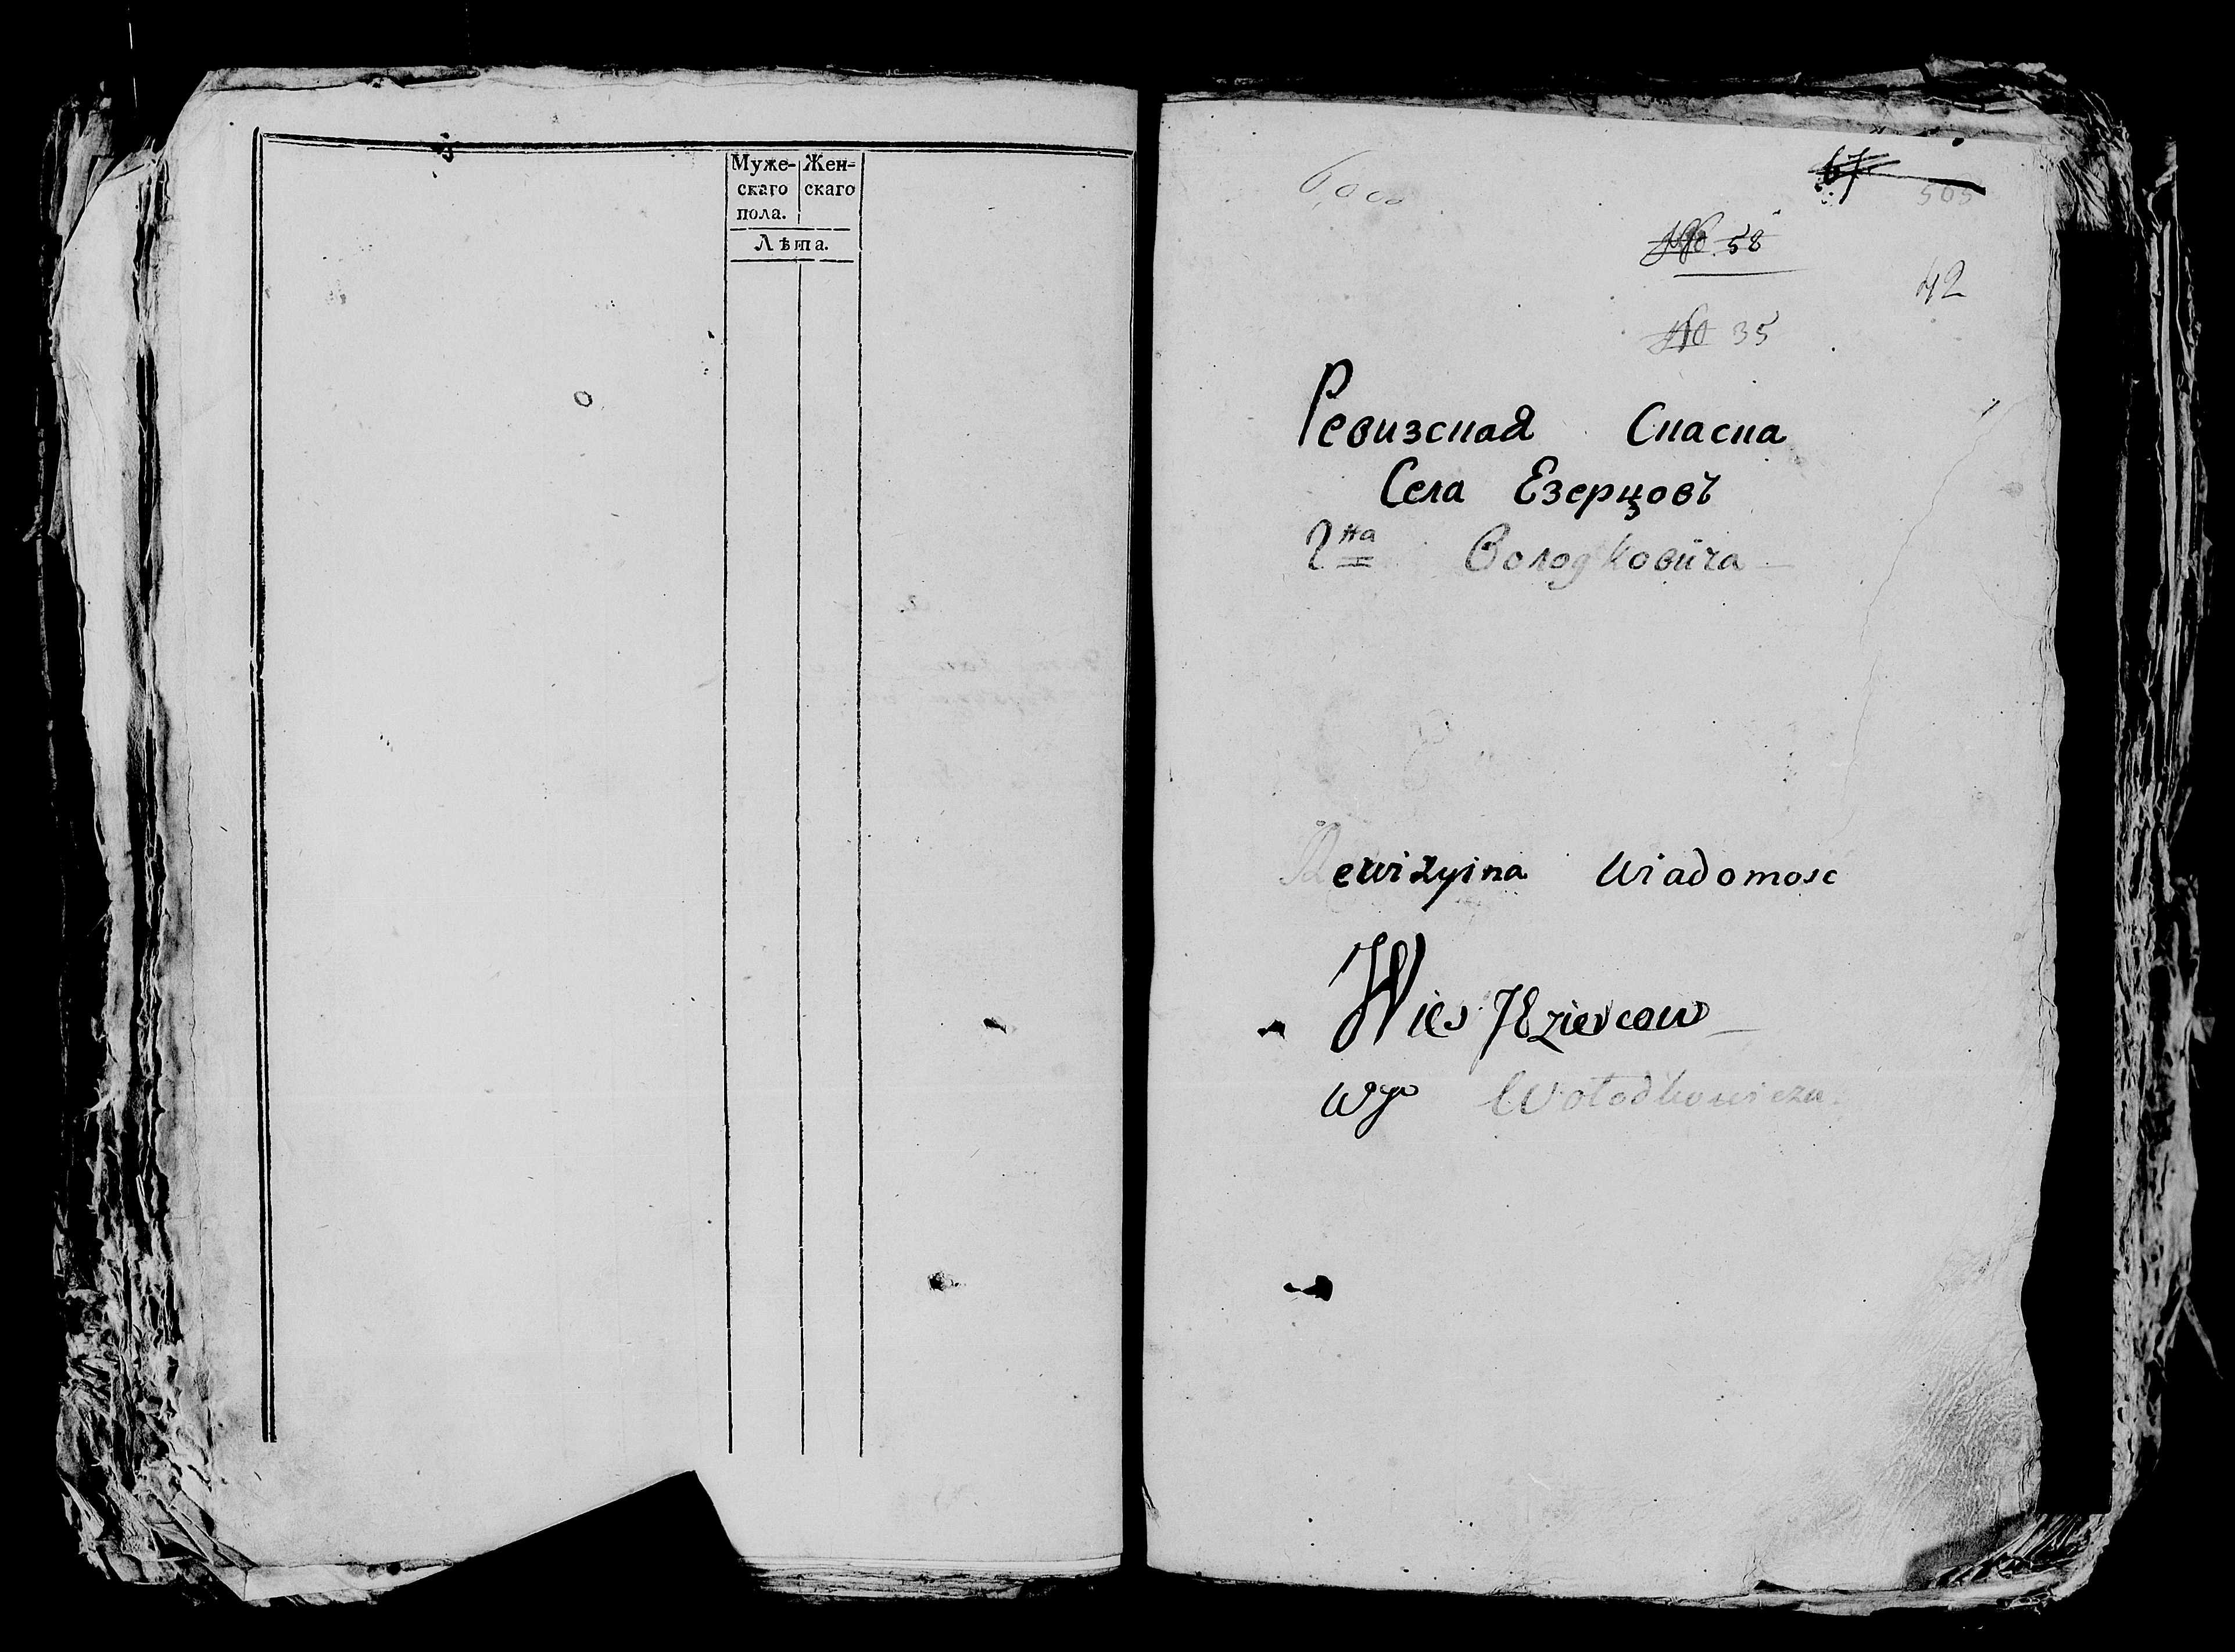 Муже- Жен-
скаго скаго
пола.
Лѣта.
67
№ 58
42
№ 35
Ревизсная Снасна
Села Езерцовъ
Гна Володковича
Rewizyina Wiadomosc
Wies JEziercow
Wgo Wołodkowicza